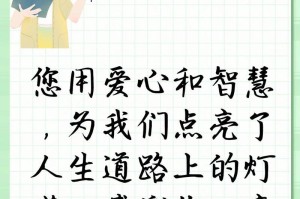 您用爱心和智慧
，为我们点亮了
人生道路上的灯